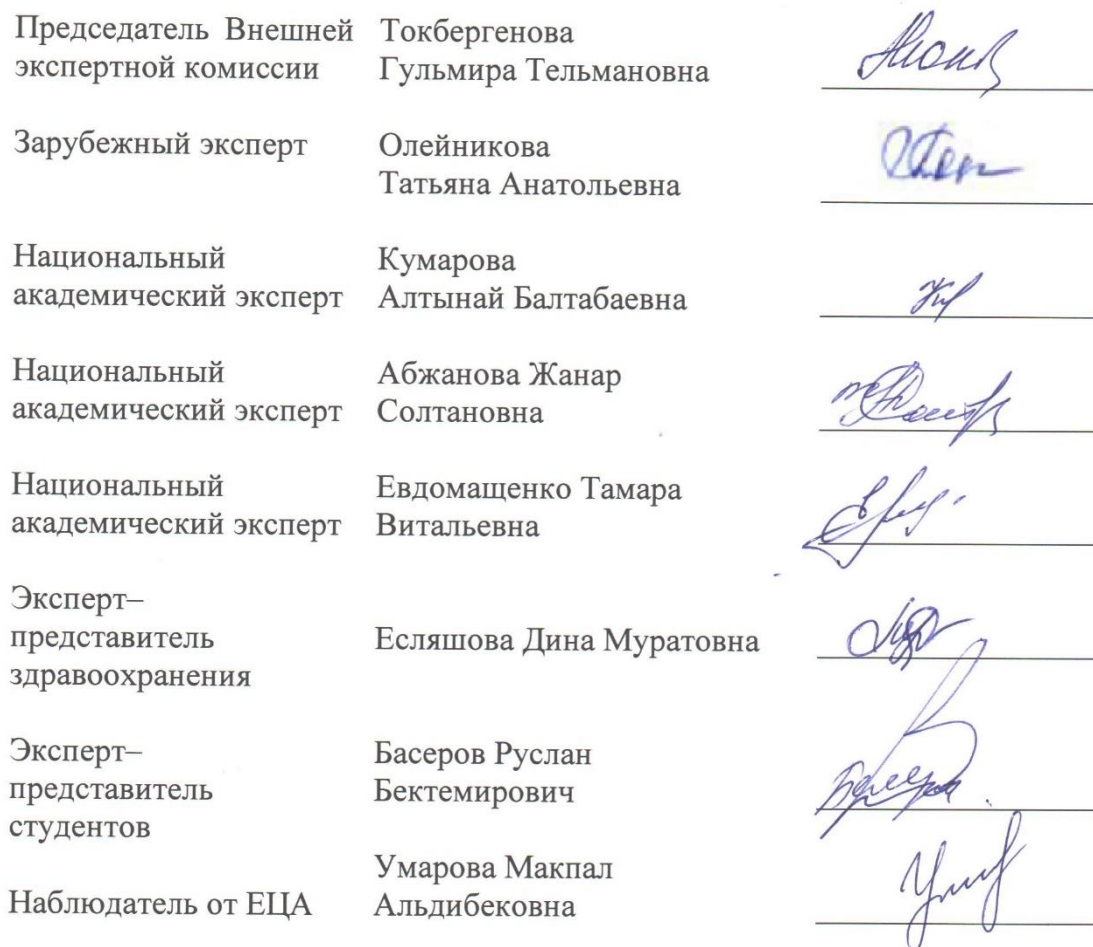 Председатель Внешней экспертной комиссии
Токбергенова Гульмира Тельмановна
Зарубежный эксперт
Олейникова Татьяна Анатольевна
Национальный академический эксперт
Кумарова Алтынай Балтабаевна
Национальный академический эксперт
Абжанова Жанар Солтановна
Национальный академический эксперт
Евдомащенко Тамара Витальевна
Эксперт– представитель здравоохранения
Есляшова Дина Муратовна
Эксперт– представитель студентов
Басеров Руслан Бектемирович
Наблюдатель от ЕЦА
Умарова Макпал Альдибековна